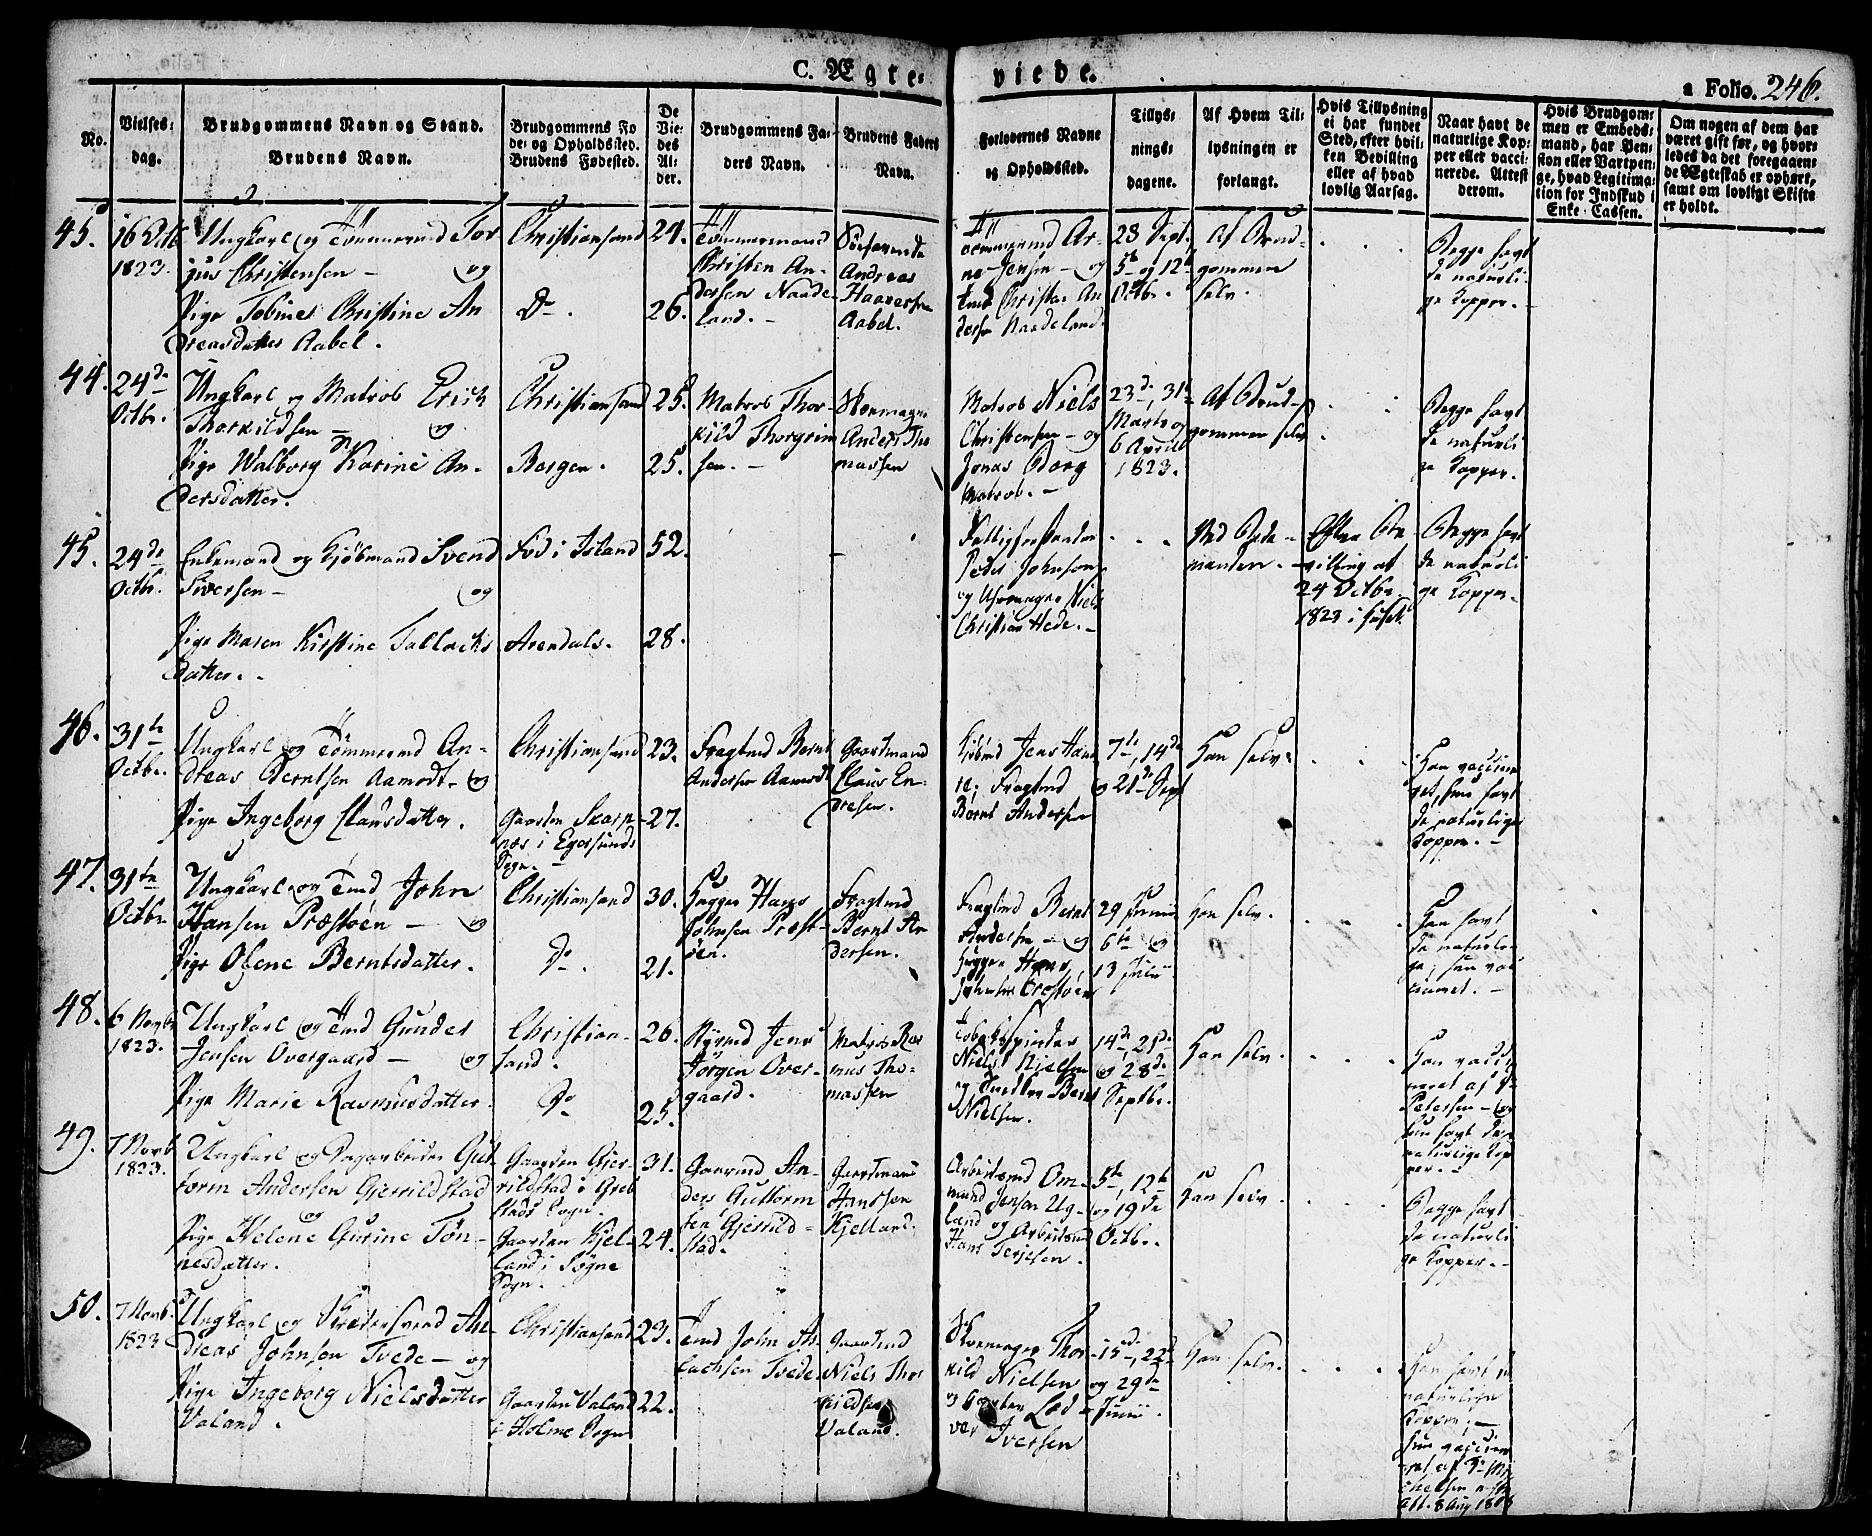 C. Ægte-
viede.
a Folio. 246.
No.
Vielses-
dag.
Brudgommens Navn og Stand.
Brudens Navn.
Brudgommens Fø
de- og Opholdssted.
Brudens Fødested.
De
Vie-
des
Al-
der.
Brudgommens Fa-
ders Navn.
Brudens Faders
Navn.
Forlovernes Navne
og Opholdssted.
Tillys-
nings-
dagene.
Af Hvem Til-
lysningen er
forlangt.
Hvis Tillysning
ei har fundet
Sted, efter hvil-
ken Bevilling
eller af hvad
lovlig Aarsag.
Naar havt de
naturlige Kop-
per eller vacci-
nerede. Attest
derom.
Hvis Brudgom-
men er Embeds-
mand, har Pen-
sion eller Vartpen-
ge, hvad Legitima-
tion for Indskud i
Enke-Cassen.
Om nogen af dem har
været gift før, og hvor-
ledes da det foregaaen-
de Ægteskab er ophørt,
samt om lovligt Skifte
er holdt.
16 Octb
1823.
Ungkarl og Tømmermd Tor
jus Christensen - og
Pige Tobine Christine An
dreasdatter Aabel.
Christiansand
Do.
24.
26.
Tømmermand
Christen An-
dersen Naade-
land. -
Andreas
Aabel.
Tømmermd Ar-
ne Jensen - og
Tmd Christen An
dersen Naadeland.
28 Sept.
5te og 12te
Octbr.
Af Brud-
gommen
selv.
Begge havt
de naturli
ge Kopper. -
44.
24de
Octbr.
Ungkarl og Matros Erich
Thorkildsen - og
Pige Walborg Karine An-
dersdatter.
Christiansand
Bergen.
25.
25.
Matros Thor-
kild Thorgrim
sen. -
Anders Tho
massen
Matros Niels
Christensen - og
Jonas Berg
Matros. -
23de, 31te
Marts og
6 April
1823.
Af Brud-
gommen selv
Begge havt
de naturli
ge Kopper.
45.
24de
Octbr.
Enkemand og Kjøbmand Svend
Siversen - og
Pige Maren Kirstine Tallacks
datter.
Fød i Island
Arendals.
52.
28.
Fattigforstander
Peder Johnsen
og Uhrmager Niels
Christian Hede. -
Efter Be
villing af
24 Octbr.
1823 i Huset.
Begge havt
de naturli
ge Kopper.
46.
31te
Octbr.
Ungkarl og Tømmermd An-
dreas Berntsen Aamodt - og
Pige Ingeborg Clausdatter.
Christiansand
Gaarden Skarp
næs i Egersunds
Sogn.
23.
27.
Fragtmd Bernt
Andersen Aamodt
Gaardmand
Claus En-
dresen.
Fragtmd
Bernt Andersen
7de, 14de
og 21de Sept
Han selv.
Han vaccine
ret, hun havt
de naturlige
Kopper. -
47.
31te
Octbr.
Ungkarl og Tmd John
Hansen Præstøen - og
Pige Olene Berntsdatter.
Christiansand
Do.
30.
21.
Hugger Hans
Johnsen Præst-
øen.
Fragtmd
Bernt An
dersen.
Fragtmd Bernt
Andersen - og
Hugger Hans
Johnsen Præstøen
29 Junii
6te og
13 Julii
Han selv.
Han havt
de naturli-
ge, hun vac
cineret. -
48.
6 Novbr
1823.
Ungkarl og Tmd Gunder
Jensen Overgaard - og
Pige Marie Rasmusdatter.
Christian-
sand.
Do
26.
25.
Jens
Jørgen Over-
gaard.
Matros Ras
mus Tho-
massen
Tobaksspinder
Niels Nielsen
og Bernt
Nielsen.
14de, 21de
og 28de
Septbr.
Han selv.
Han vacci
neret af
Petersen - og
hun havt de
naturlige Kop
per. -
49.
7 Novb
1823.
Ungkarl og Dagarbeider Gut-
torm Andersen Gjerrildstad
og
Pige Helene Gurine Tøn-
nesdatter.
Gaarden Gjer-
rildstad i Greb
stads Sogn.
Gaarden Kjel-
land i Søgne
Sogn.
31.
24.
Gaardmd An-
ders Guttorm
sen Gjerrild-
stad.
Gaardmand
Hanssen
Kjelland.
Arbeidsmd Om-
mund Jensen Ug-
land og Arbeidsmd
Hans Terjesen.
5te, 12te
og 19de
Octbr.
Han selv.
Begge havt
de naturli
ge Kopper. -
50.
7 Novb.
1823
Ungkarl og An-
dreas Johnsen Tvede - og
Pige Ingeborg Nielsdatter
Valand.
Christiansand
Gaarden Valand
i Holme Sogn
23.
22.
Tmd John As
lachsen Tvede
Gaardmd
Niels Thor
kildsen
Valand.
Skomager Thor-
kild Nielsen
og
Iversen
15de, 22de
og 29de
Junii.
Han selv.
Han havt de
naturlige
Kopper; -
hun vaccine
ret af